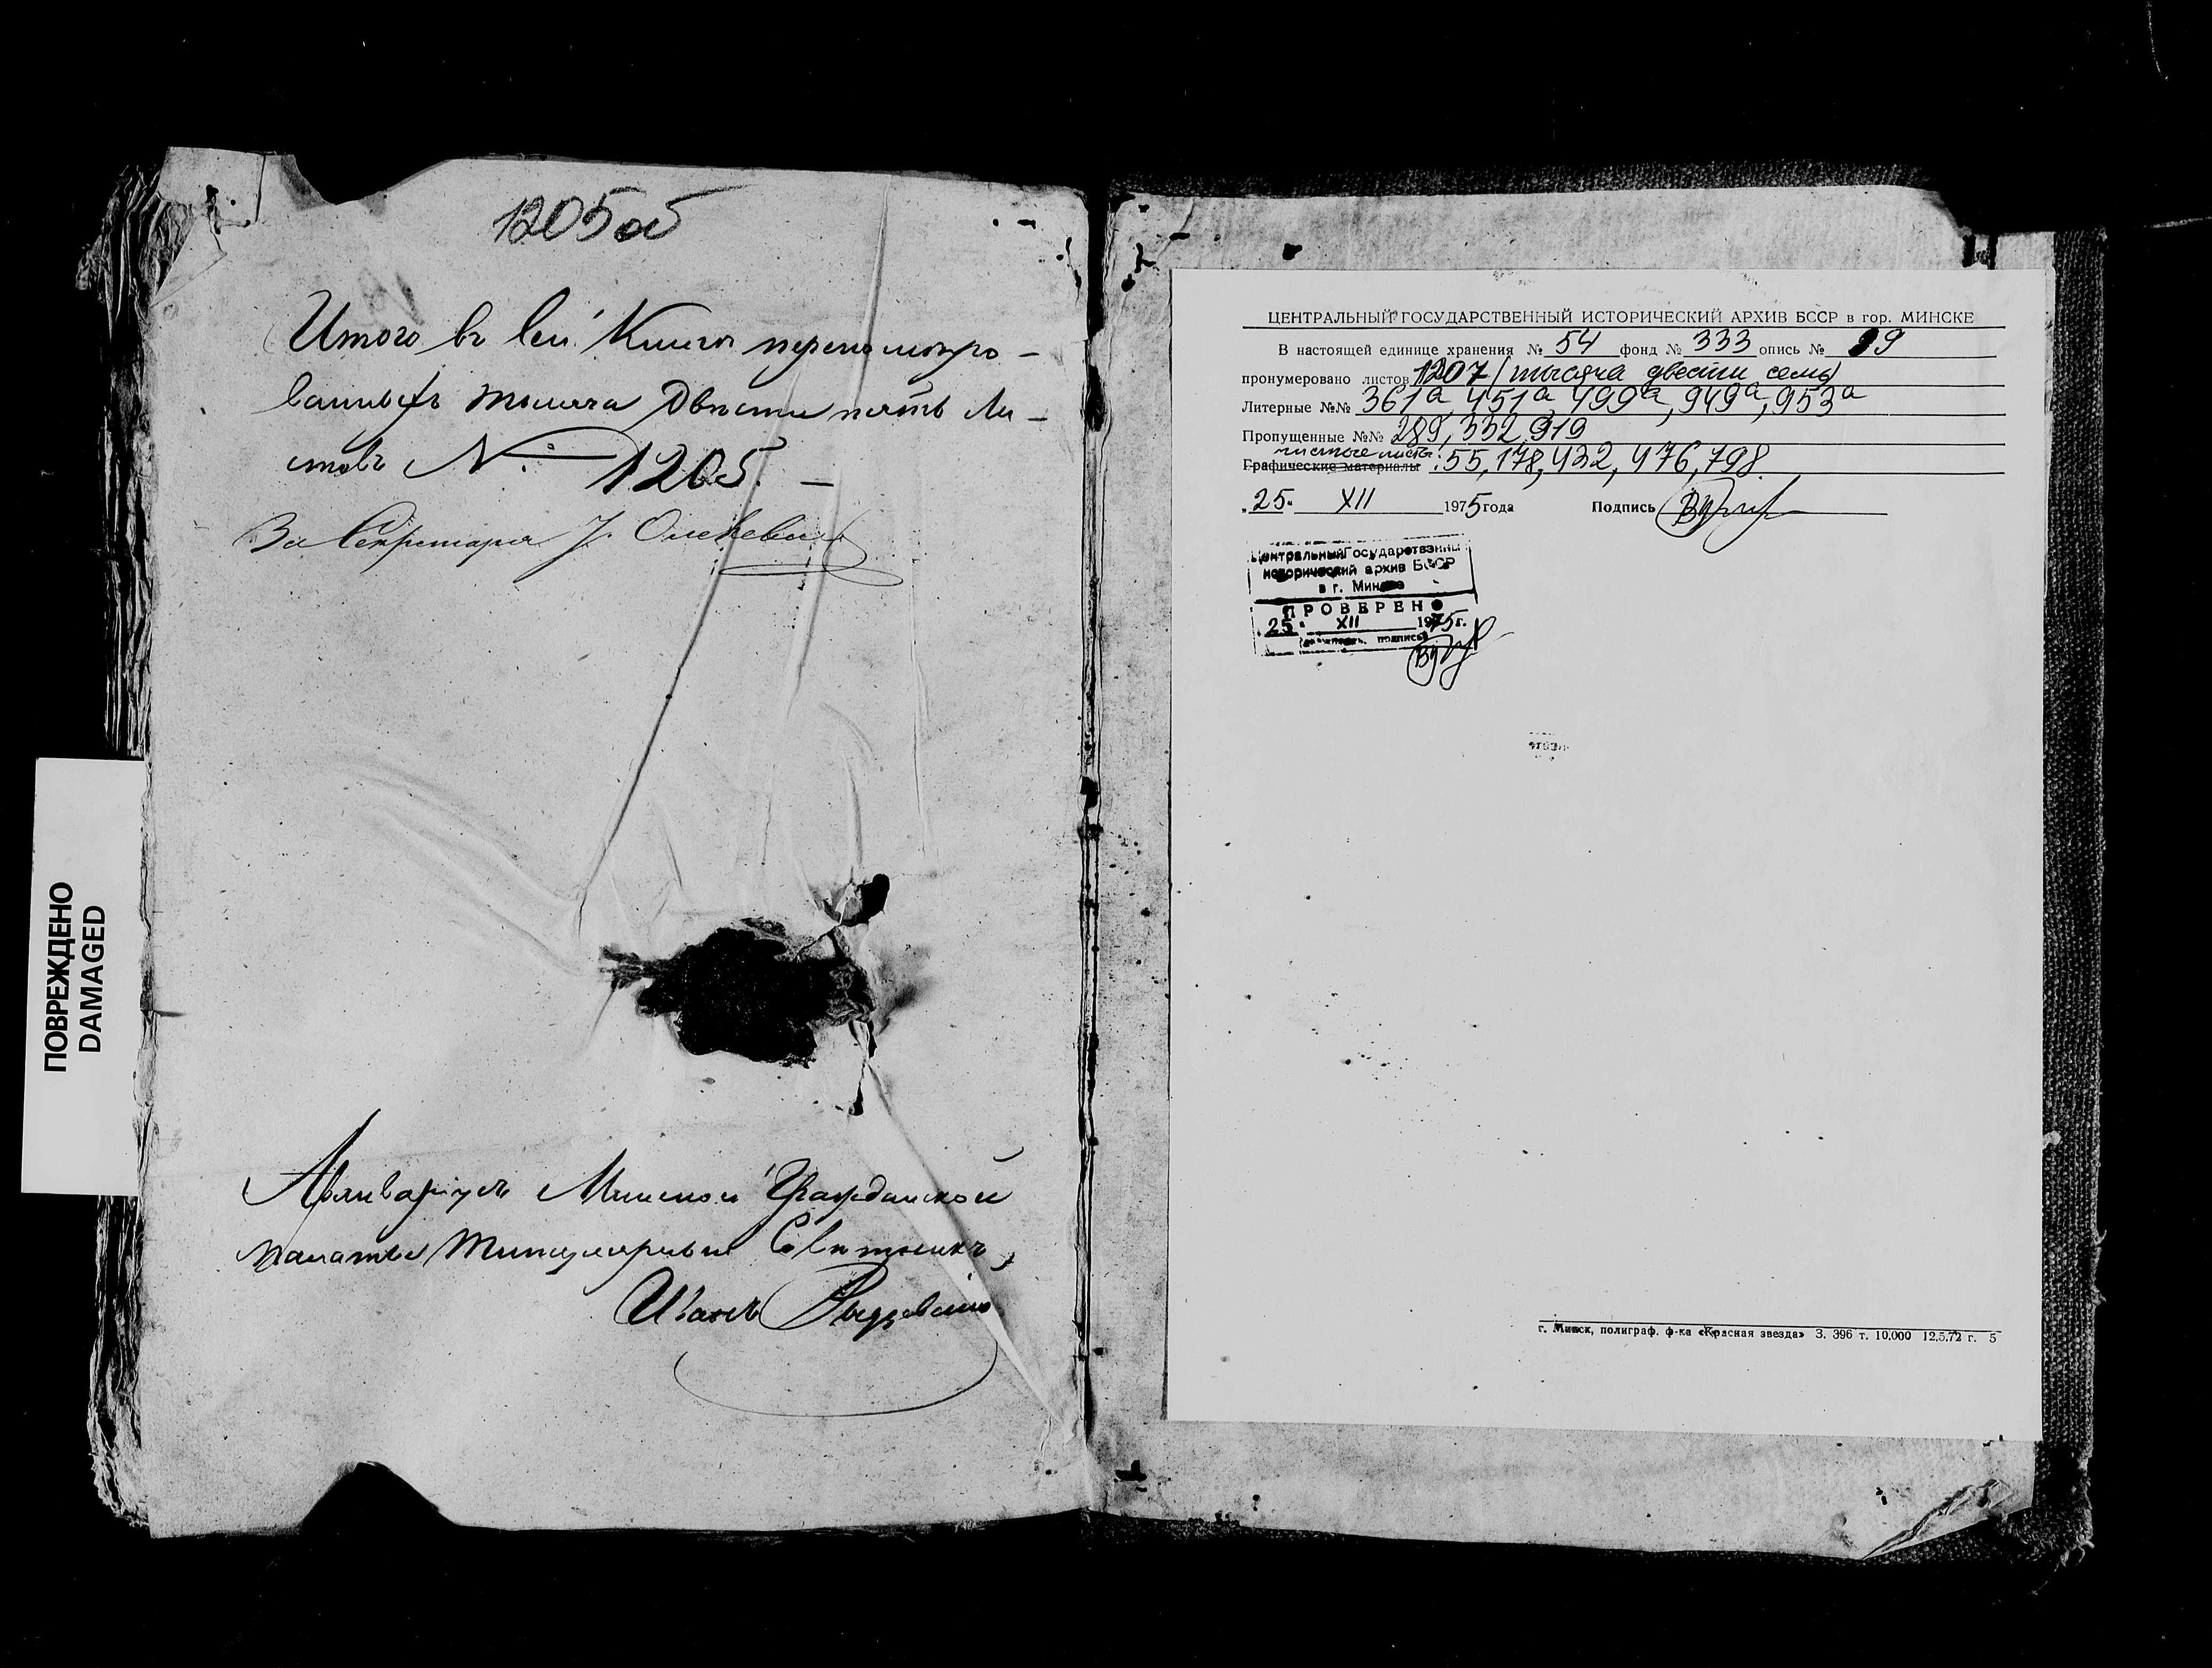 1205об
Итого въ сей Книге перенумеро-
ванныхъ тысяча Двести пять Ли-
стовъ № 1205. –
За Секретаря
Архиваріусъ Минской Гражданской
палаты Титулярный Советникъ,
Иванъ
ПОВРЕЖДЕНО
DAMAGED
ЦЕНТРАЛЬНЫЙ ГОСУДАРСТВЕННЫЙ ИСТОРИЧЕСКИЙ АРХИВ БССР в гор. МИНСКЕ
В настоящей единице хранения № 54 фонд № 333 опись № 9
пронумеровано листов 1207 (тысяча двести семь)
Литерные №№ 361а, 451а, 499а, 949а, 953а
Пропущенные №№ 289, 332, 919
чистые листы:
Графические материалы 55, 178, 432, 476, 798
„25“ XII 1975 года Подпись
Центральный Государственный
исторический архив БССР
в г. Минске
ПРОВЕРЕНО
„25“ XII 1975 г.
г. Минск, полиграф. ф-ка «Красная звезда» З. 396 т. 10.000 12.5.72 г. 5